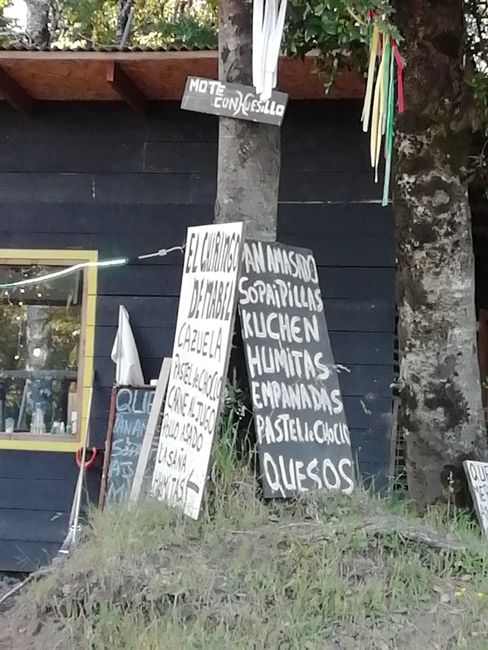 MOTE
CON HUESILLO
EL CHIRINGO
DE MABEL
CAZUELA
PASTEL DE CHOCLO
CARNE AL JUGO
POLLO ASADO
LASAÑA
HUMITAS
AN AMASADO
SOPAIPILLAS
KUCHEN
HUMITAS
EMPANADAS
PASTEL DE CHOCLO
QUESOS
QUE